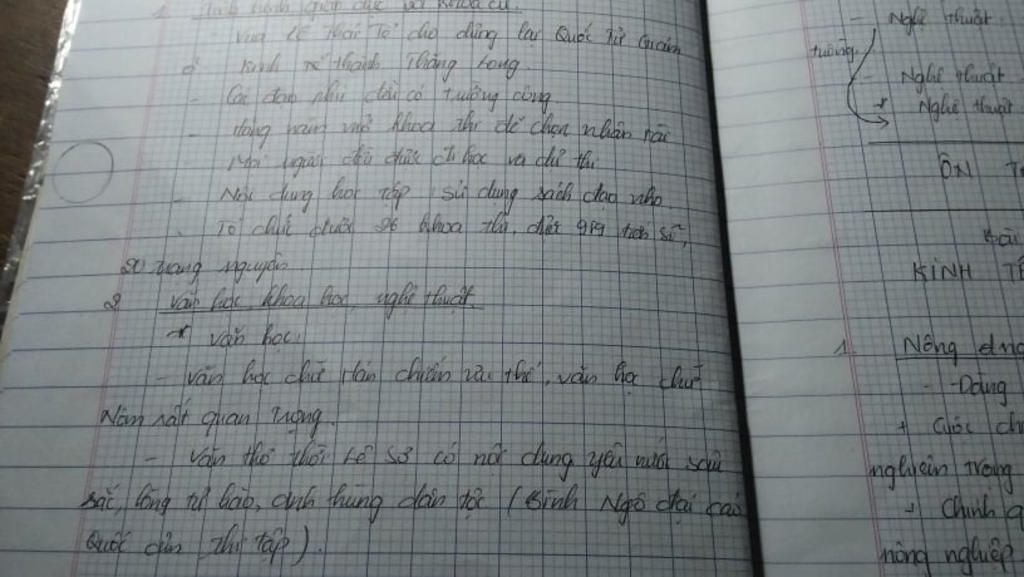 1 Tình hình giáo dục và khoa cử.
Vua Lê Thái Tổ cho dựng lại Quốc Tử Giám
ở Kinh thành Thăng Long.
- Các đạo phủ đều có trường công.
- Hàng năm mở khoa thi để chọn nhân tài
- Mọi người đều được đi học và dự thi
- Nội dung học tập: sử dụng sách đạo nho
- Tổ chức được 26 khoa thi, 989 tiến sĩ,
20 trạng nguyên.
2 Văn học, khoa học, nghệ thuật.
* Văn học:
- Văn học chữ Hán chiếm ưu thế, văn học chữ
Nôm rất quan trọng.
- Văn thơ thời Lê Sơ có nội dung yêu nước sâu
sắc, lòng tự hào, anh hùng dân tộc (Bình Ngô đại cáo
Quốc âm thi tập).
- Nghệ thuật
tuồng.
- Nghệ thuật
+ Nghệ thuật
ÔN
Bài
KINH TẾ
1. Nông
- Đàng
+ Cuộc
nguyễn trong
+ Chính
nông nghiệp